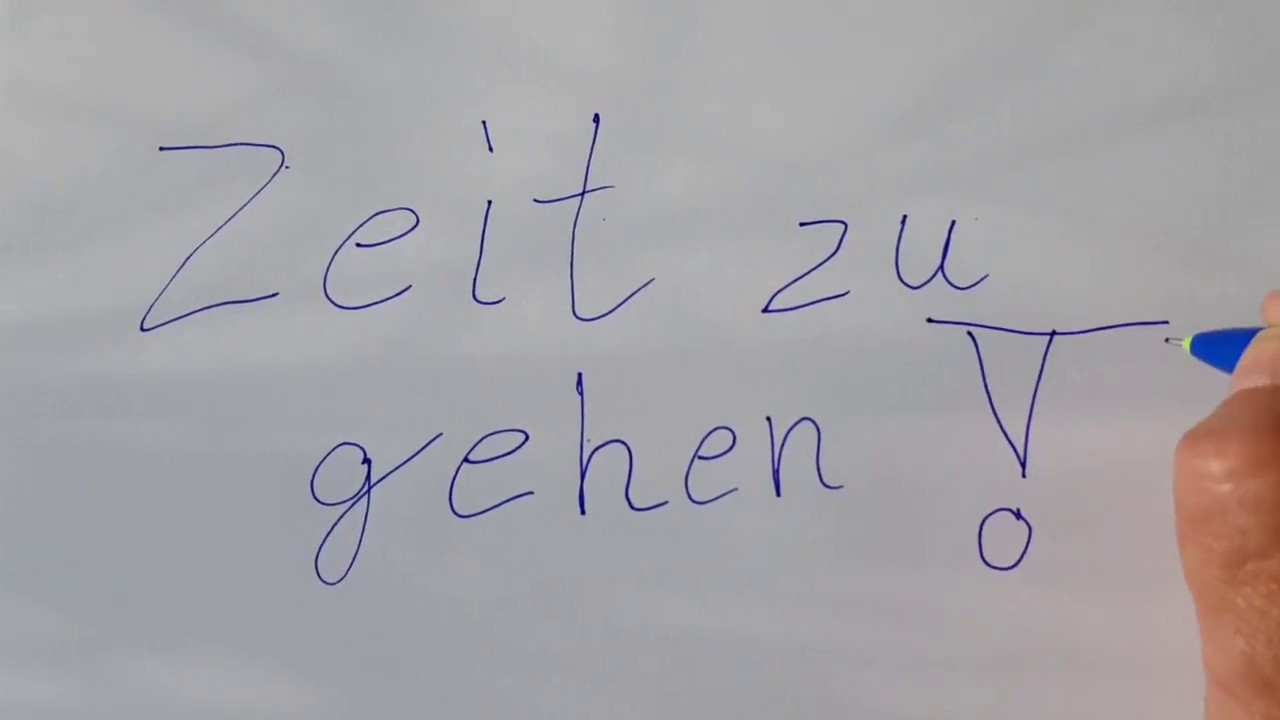 Zeit zu
gehen!